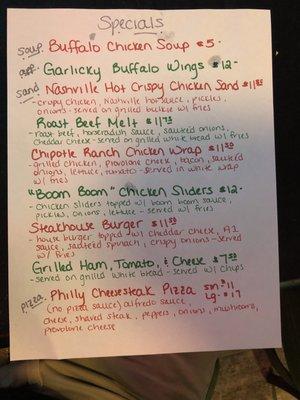 Specials
soup. Buffalo Chicken Soup $5.
app. Garlicky Buffalo Wings $12-
sand Nashville Hot Crispy Chicken Sand $11.75
- crispy chicken, Nashville hot sauce, pickles,
onions - served on grilled bulkie w/ fries
Roast Beef Melt $11.75
- roast beef, horseradish sauce, sauteed onions,
cheddar cheese - served on grilled white bread w/ fries
Chipotle Ranch Chicken Wrap $11.50
- grilled chicken, provolone cheese, bacon, sauteed
onions, lettuce, tomato - served in white wrap
w/ fries
"Boom Boom" Chicken Sliders $12-
- chicken sliders topped w/ boom boom sauce,
pickles, onions, lettuce - served w/ fries
Steakhouse Burger $11.50
- house burger topped w/ cheddar cheese, A1
sauce, sauteed spinach, crispy onions - served
w/ fries
Grilled Ham, Tomato, & Cheese $7.50
- served on grilled white bread - served w/ chips
pizza. Philly Cheesesteak Pizza sm. $11
lg. $17
(no pizza sauce) alfredo sauce,
cheese, shaved steak, peppers, onions, mushrooms,
provolone cheese